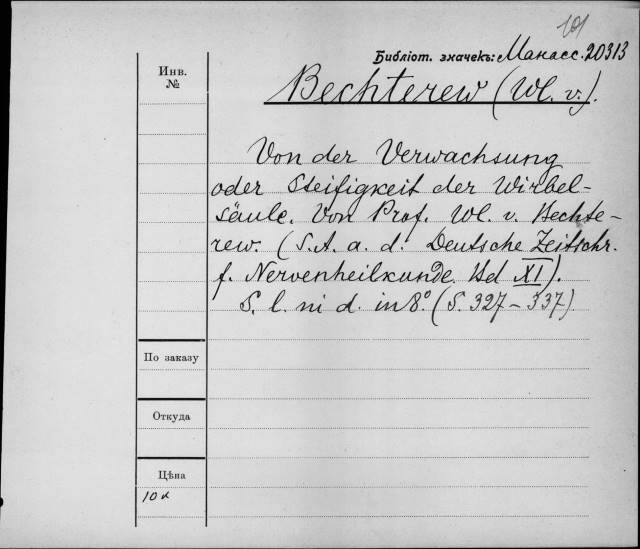 101
Библіот. значекъ: Манасс. 20313
Инв.
№
Bechterew (Wl. v.).
Von der Verwachsung
oder Steifigkeit der Wirbel-
säule. Von Prof. Wl. v. Bechte-
rew. (S.A. a. d. Deutsche Zeitschr.
f. Nervenheilkunde. Bd XI).
S. l. ni d. in 8º. (S. 327-337)
По заказу
Откуда
Цѣна
10 к